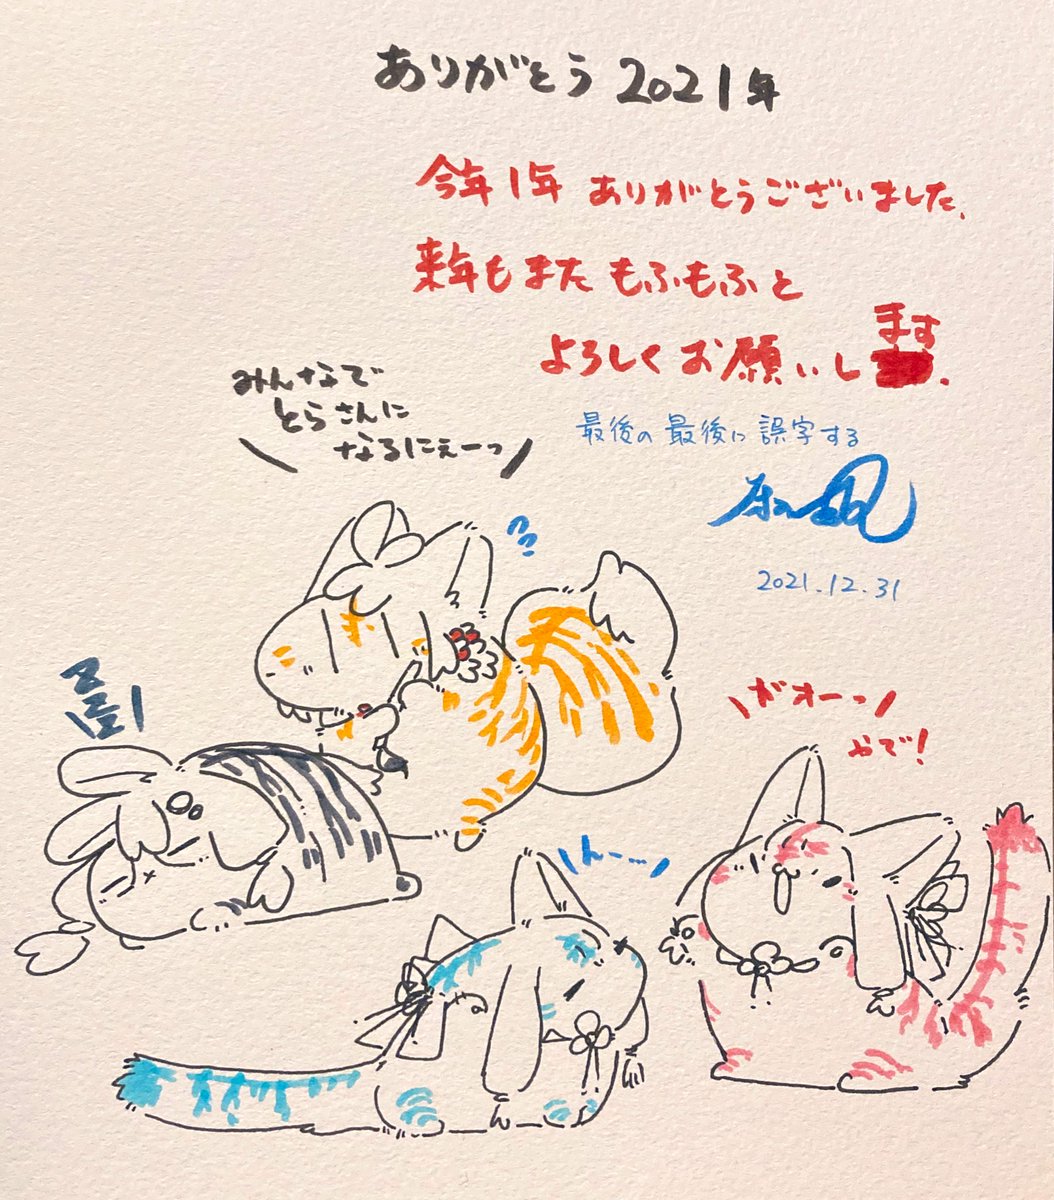 ありがとう 2021年
今年1年 ありがとうございました.
来年もまた もふもふと
よろしくお願いします.
最後の最後に誤字する
2021.12.31
みんなで
とらさんに
なるにぇーっ
がオーっ
やで!
んー…